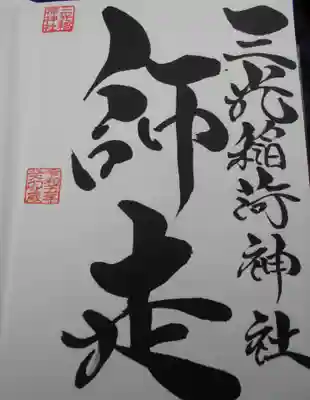 三光稲荷神社
師走